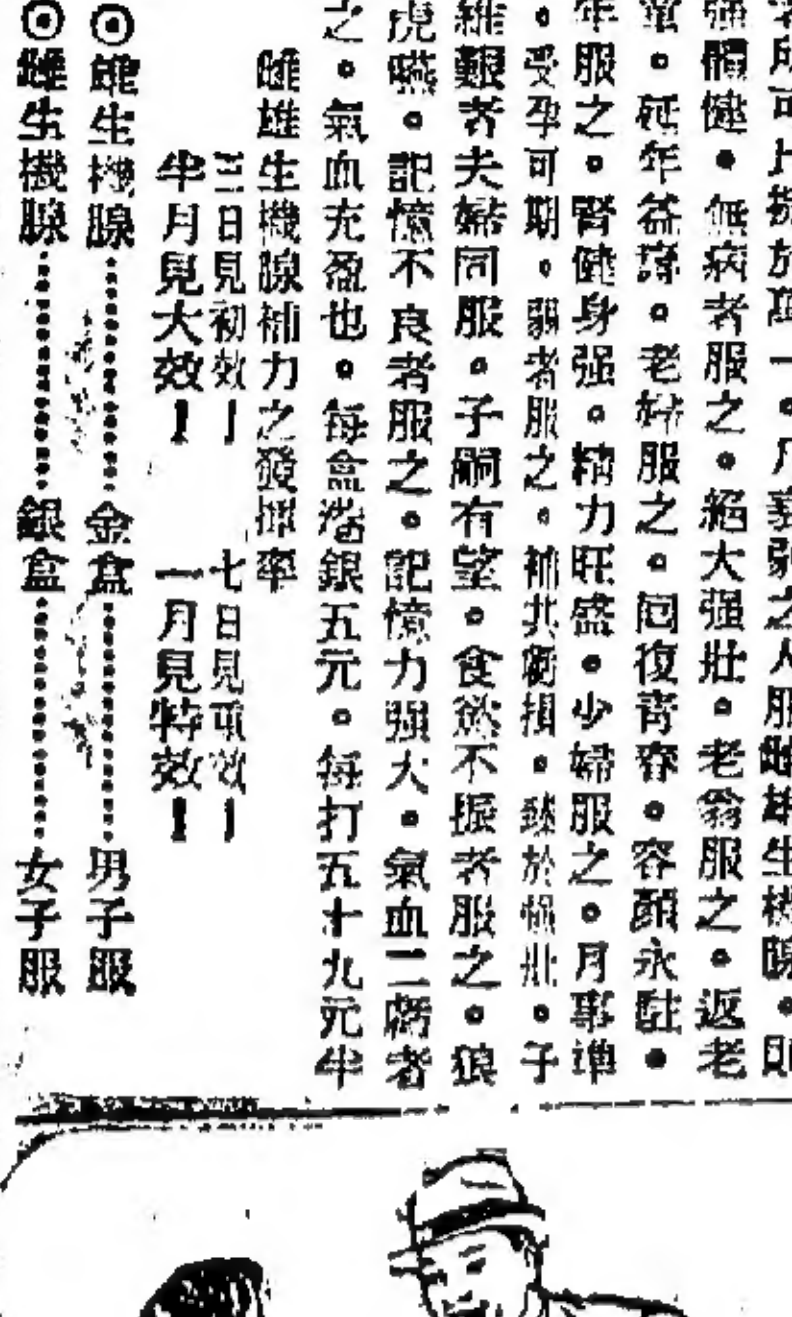 者成可比擬於萬一。凡衰弱之人服雌雄生機腺。則
強體健。無病者服之。絕大强壯。老翁服之。返老
童。延年益壽。老婦服之。囘復靑春。容顏永駐。
年服之。腎健身强。精力旺盛。少婦服之。月事準
。受孕可期。弱者服之。補其虧損。臻於强壯。子
維艱者夫婦同服。子嗣有望。食慾不振者服之。狼
虎嚥。記憶不良者服之。記憶力强大。氣血二虧者
之。氣血充盈也。每盒港銀五元。每打五十九元半
雌雄生機腺補力之發揮率
三日見初效! 七日見頭效!
半月見大效! 一月見特效!
◎雄生機腺………金盒………男子服
◎雌生機腺………銀盒………女子服